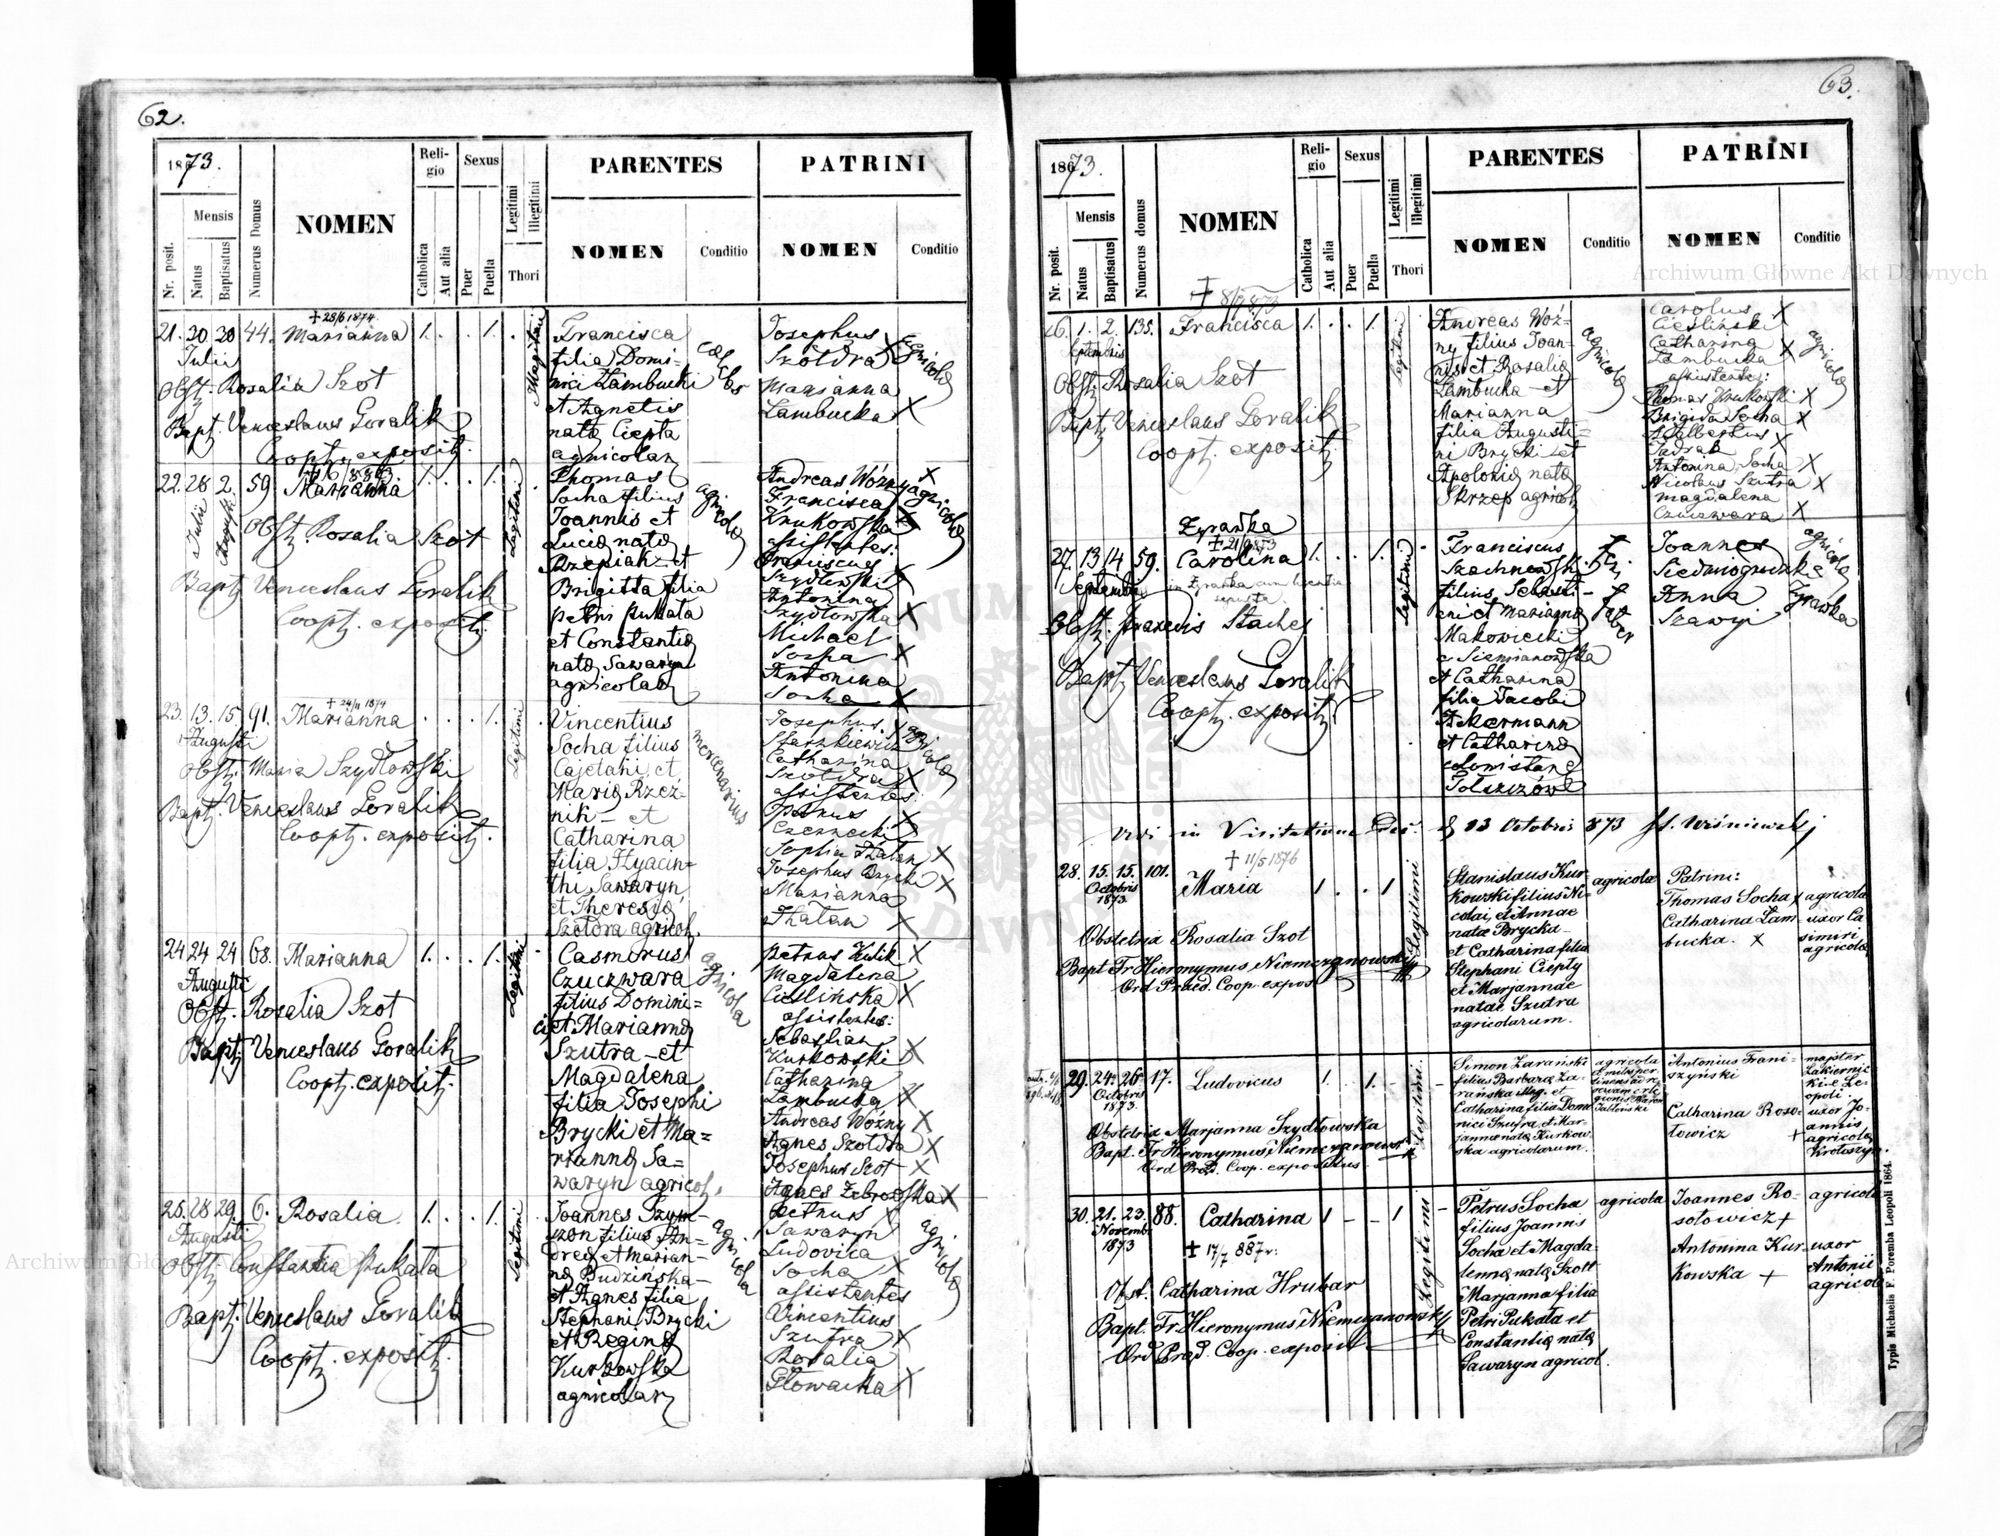 62.
1873.
Nr. posit.
Mensis
Natus
Baptisatus
Numerus Domus
NOMEN
Religio
Catholica
Aut alia
Sexus
Puer
Puella
Legitimi
Illegitimi
Thori
PARENTES
NOMEN
Conditio
PATRINI
NOMEN
Conditio
† 28/6 1874
21. 30. 30 44. Marianna 1. . . 1. .
Julii
Obst. Rosalia Szot
Bapt. Venceslaus Goralik
Coopt. exposit.
Illegitimi
Francisca
filia Domi-
nici Łambucki
et Agnetis
nata Ciepła
agricolar
Josephus X
Szotdra
Marianna
Łambucka X
agricolae
22. 28 2. 59. Marianna 1. . . 1.
Julii
Augusti
Obst. Rosalia Szot
Bapt. Venceslaus Goralik
Coopt. exposit.
Legitimi
Thomas
Socha filius
Joannis et
Lucia nata
Rzepiak et
Brigitta filia
Petri Pukała
et Constantia
nata Sawaryn
agricolar
agricola
Andreas Woźny X
Francisca
Krukowska X
assistentes:
Franciscus
Szydłowski X
Antonina
Szydłowska X
Michael
Socha X
Antonina
Socha X
agricolae
† 24/11 1874
23. 13. 15. 91. Marianna . . . 1. .
Augusti
Obst. Maria Szydłowski
Bapt. Venceslaus Goralik
Coopt. exposit.
Legitimi
Vincentius
Socha filius
Cajetani et
Maria Rzeź-
nik - et
Catharina
filia Hyacin-
thi Sawaryn
et Theresia
Szotdra agricol.
mercenarius
Josephus X
Starzkiewicz
Catharina
Szotdra X
assistentes:
Petrus
Czernecki X
Sophia Hatan X
Josephus Brycki X
Marianna
Hatan X
agricolae
24 24 24 68. Marianna 1. . . 1. .
Augusti
Obst. Rosalia Szot
Bapt. Venceslaus Goralik
Coopt. exposit.
Legitimi
Casmirus
Czuczwara
filius Domini-
ci et Marianna
Szutra - et
Magdalena
filia Josephi
Brycki et Ma-
rianna Sa-
waryn agricol.
agricola
Petrus Kulik X
Magdalena
Cieślińska X
assistentes:
Sebastian
Kurkowski X
Catharina
Łambucka X
Andreas Woźny X
Agnes Szotdra X
Josephus Szot X
Agnes Żebrowska X
25. 28 29. 6. Rosalia. 1. . . 1.
Augusti
Obst. Constantia Pukała
Bapt. Venceslaus Goralik
Coopt. exposit.
Legitimi
Joannes Szym-
szon filius An-
drea et Marian-
na Budzińska -
et Agnes filia
Stephani Brycki
et Regina
Kurkowska
agricolar
agricola
Petrus X
Sawaryn
Ludovica
Socha X
assistentes
Vincentius
Szutra X
Rosalia
Głowacka X
agricolae
63.
1873.
Nr. posit.
Mensis
Natus
Baptisatus
Numerus domus
NOMEN
Religio
Catholica
Aut alia
Sexus
Puer
Puella
Legitimi
Illegitimi
Thori
PARENTES
NOMEN
Conditio
PATRINI
NOMEN
Conditio
26. 1. 2. 135. Francisca 1. . . 1.
Septembris
Obst. Rosalia Szot
Bapt. Venceslaus Goralik
Coopt. exposit.
Legitimi
Andreas Woź-
ny filius Joan-
nis et Rosalia
Łambucka - et
Marianna
filia Augusti-
ni Brycki et
Apolonia nata
Skrzep agricol.
agricola
Carolus X
Cieśliński
Catharina
Łambucka X
assistentes:
Thomas Krukowski X
Brigida Socha X
Adalbertus
Sadrak X
Antonina Socha X
Nicolaus Szutra X
Magdalena
Czuczwara X
agricolae
Żyrawka
† 21/9 873
27. 13 14 59. Carolina 1. . . 1.
Septembris
in Żyrawka cum licentia
sepulta.
Obst. Praxedis Stachej
Bapt. Venceslaus Goralik
Coopt. exposit.
Legitimi
Franciscus
Szachnowski
filius Sebasti-
ani et Marianna
Makowiecki
e Siemianowska
et Catharina
filia Jacobi
Akermann
et Catharina
colonistane
Tołszczów
Joannes
Siedmiogrodzki
Anna
Szawij
Żyrawka
Vidi in Visitatione Dec. d 13 Octobris 873 ft. Wiśniewski
† 11/5 1876
28. 15. 15. 101. Maria 1 . . 1
Octobris
1873.
Obstetrix Rosalia Szot
Bapt Fr Hieronymus Niemczanowski
Ord Præd. Coop. expos
Legitimi
Stanislaus Kur-
kowski filius Ni-
colai, et Annae
natæ Brycka -
et Catharina filia
Stephani Ciepły
et Marjannae
natae Szutra
agricolarum.
agricola
Patrini:
Thomas Socha x
Catharina Łam-
bucka. X
agricola
uxor Ca
simiri
agricola
29. 24. 26. 17. Ludovicus 1. - 1. - -
Octobris
1873.
Obstetrix Marjanna Szydłowska
Bapt. Fr Hieronymus Niemczanowski
Ord Præd. Coop. expositus
Legitimi.
Simon Zarański
filius Barbara Za-
rańska illeg. et
Catharina filia Domi
nici Szufra, et Mar-
janna nata Kurkow-
ska agricolarum.
agricola
Antonius Frani-
szyński
Catharina Roso-
łowicz +
majster
Lakiernic
ki e Le-
opoli
uxor Jo-
annis
agricola
Krotoszyn.
30. 21. 23. 88. Catharina 1 - - 1
Novemb.
1873
† 17/7 887 r:
Obst. Catharina Hrubar
Bapt. Fr. Hieronymus Niemczanowski
Ord Præd. Coop. exposit.
Legitimi
Petrus Socha
filius Joannis
Socha et Magda-
lenna nata Szott
Marjanna filia
Petri Pukała et
Constantia nata
Sawaryn agricol.
agricola
Joannes Ro-
sołowicz +
Antonina Kur-
kowska +
agricola
uxor
Antonii
agricol.
Typis Michaelis F. Poremba Leopoli 1864.
Archiwum Główne Akt Dawnych